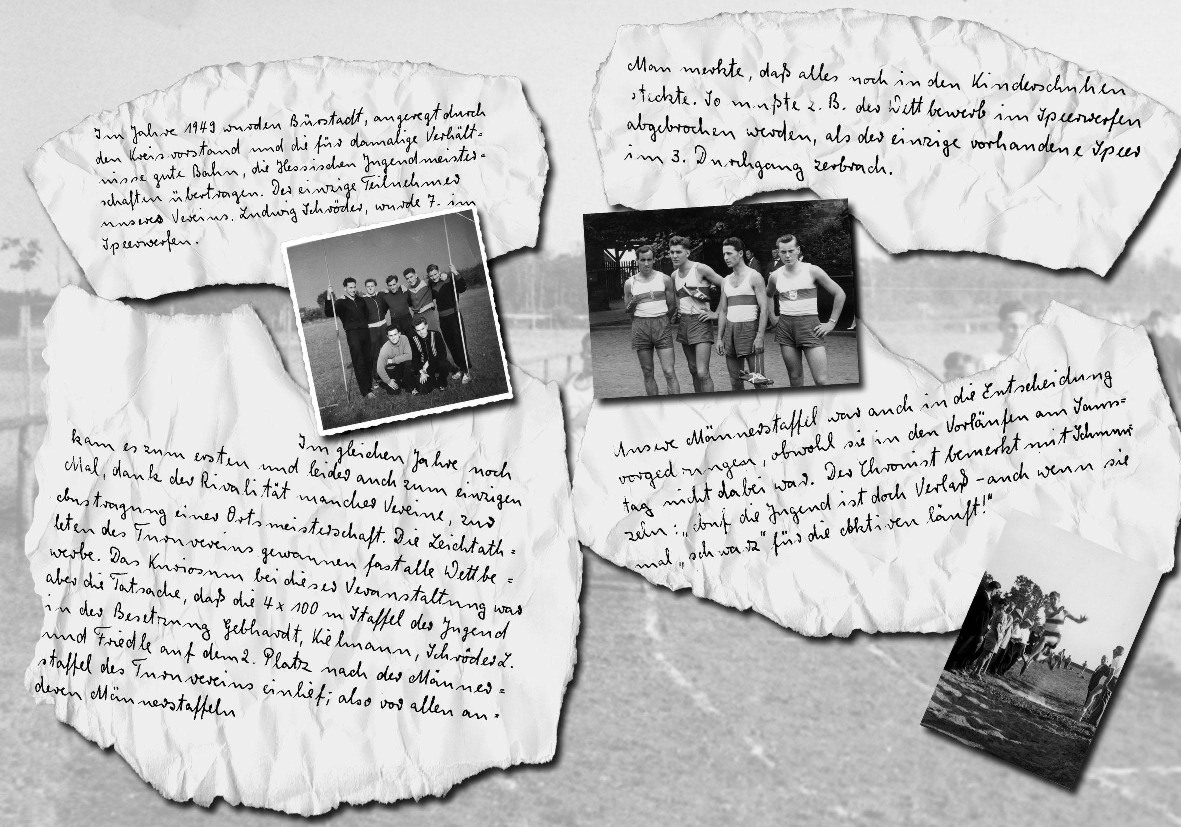 Im Jahre 1949 wurden Bürstadt, angeregt durch
den Kreisvorstand und die für damalige Verhält-
nisse gute Bahn, die Hessischen Jugendmeister-
schaften übertragen. Der einzige Teilnehmer
unseres Vereins, Ludwig Schröder, wurde 7. im
Speerwerfen.
Man merkte, daß alles noch in den Kinderschuhen
steckte. So mußte z. B. der Wettbewerb im Speerwerfen
abgebrochen werden, als der einzige vorhandene Speer
im 3. Durchgang zerbrach.
Im gleichen Jahre noch
kam es zum ersten und leider auch zum einzigen
Mal, dank der Rivalität mancher Vereine, zur
Austragung einer Ortsmeisterschaft. Die Leichtath-
leten des Turnvereins gewannen fast alle Wettbe-
werbe. Das Kuriosum bei dieser Veranstaltung war
aber die Tatsache, daß die 4 x 100 m Staffel der Jugend
in der Besetzung Gebhardt, Kilmann, Schröder L.
und Friedle auf dem 2. Platz nach der Männer-
staffel des Turnvereins einlief; also vor allen an-
deren Männerstaffeln
Unsere Männerstaffel war auch in die Entscheidung
vorgedrungen, obwohl sie in den Vorläufen am Sams-
tag nicht dabei war. Der Chronist bemerkt mit Schmun-
zeln: „Auf die Jugend ist doch Verlaß – auch wenn sie
mal „schwarz" für die Aktiven läuft!"